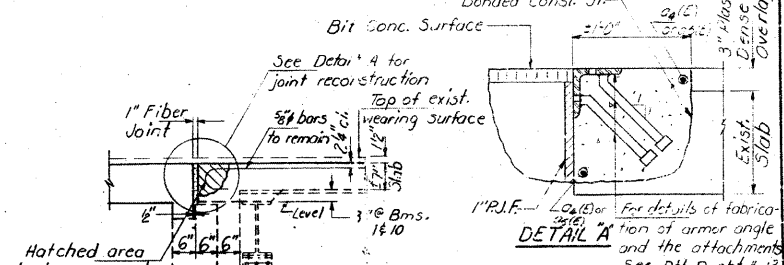 Bonded Const. Jt.
Bit. Conc. Surface
±1'-0"
a4(E)
3" Plas
Dense
Overlay
See Detail A for
joint reconstruction
1" Fiber
Joint
5/8"ϕ bars
to remain
2 1/4" cl.
Top of exist.
wearing surface
1 1/2"
±7"
Slab
Exist.
Slab
Level
3" @ Bms.
1 & 10
1/2"
6" 6" 6"
Hatched area
1" P.J.F.
a4(E) or
DETAIL "A"
For details of fabrica-
tion of armor angle
and the attachments
See